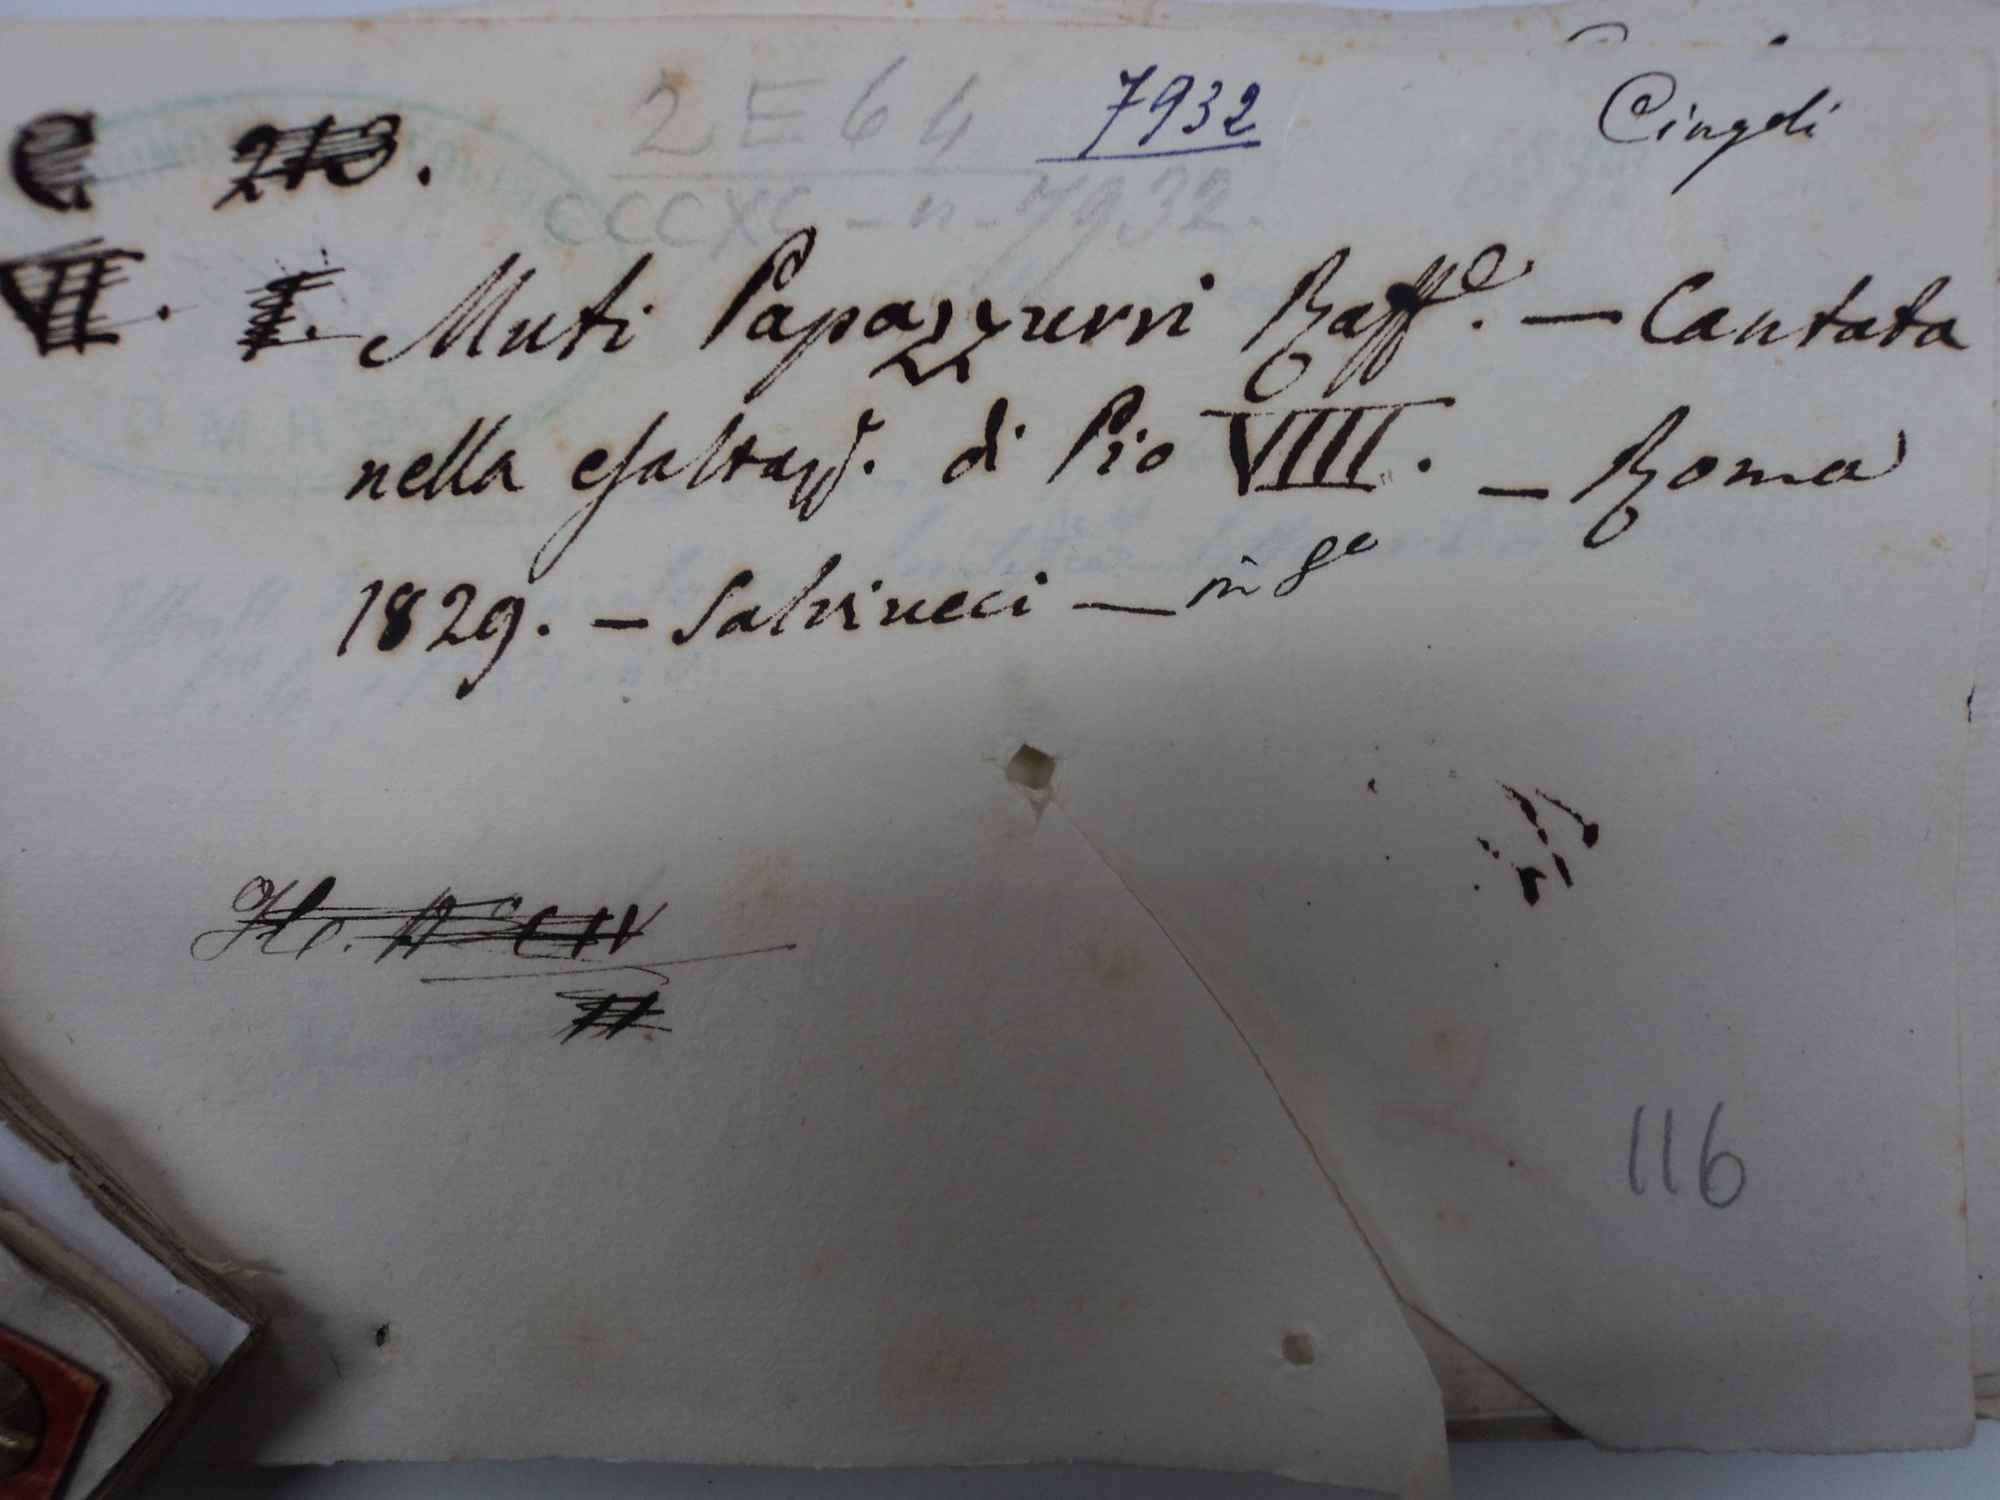 2 E 64 7932 Cingoli
C 213.
CCCXC - n - 7932.
VII. I. Muti Papazzurri Raff.e - Cantata
nella esaltazz. di Pio VIII. - Roma
1829. - Salviucci - in 8°
CIV
II
116